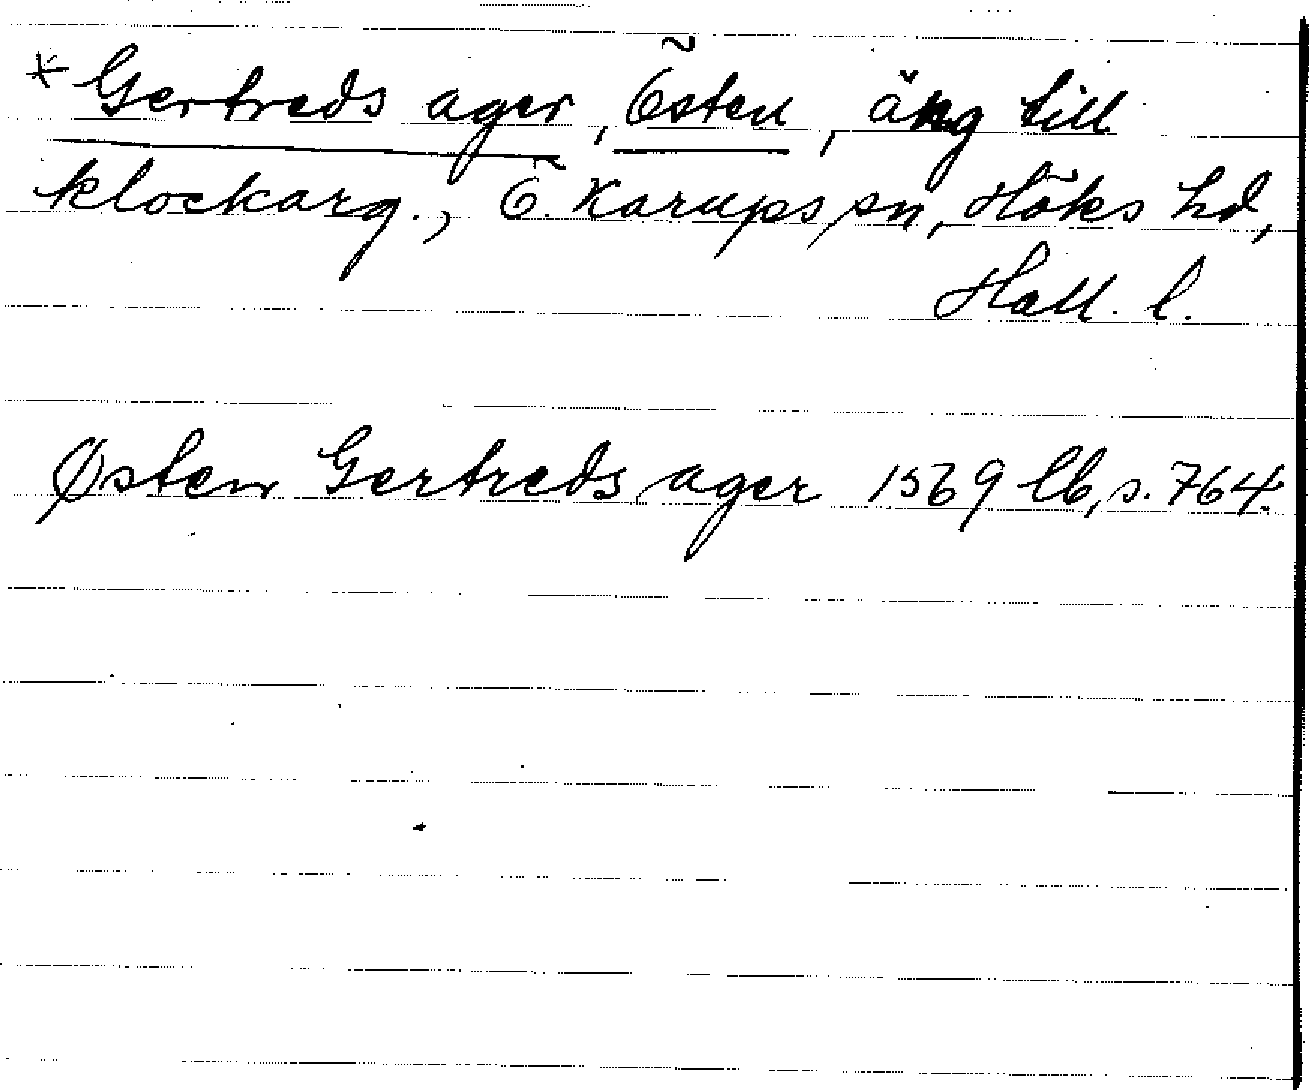 * Gertreds ager, Östen, äng till
klockarg., Ö. Karups sn, Höks hd,
Hall. l.
Østen Gertreds ager 1569 lb, s. 764.